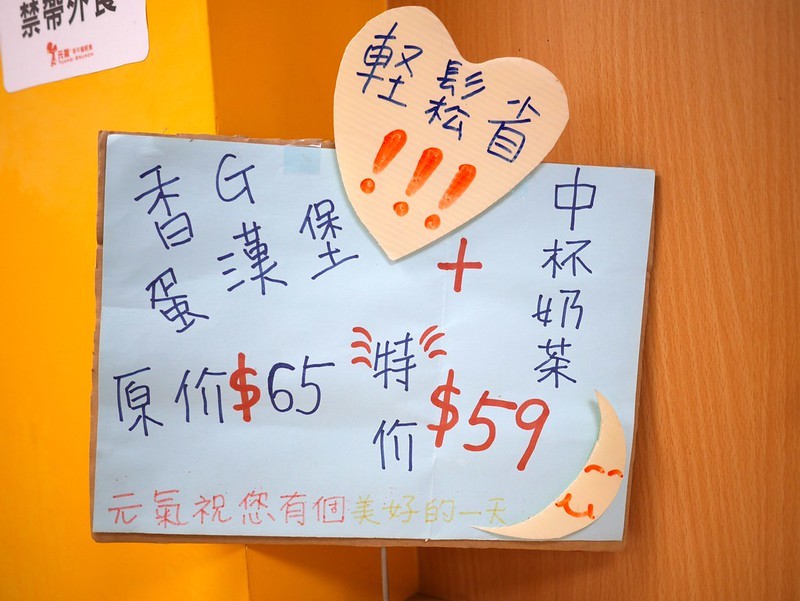 禁帶外食
元氣
輕鬆省
!!!
香G
蛋漢堡
+
中杯奶茶
原价$65
特价
$59
元氣祝您有個美好的一天